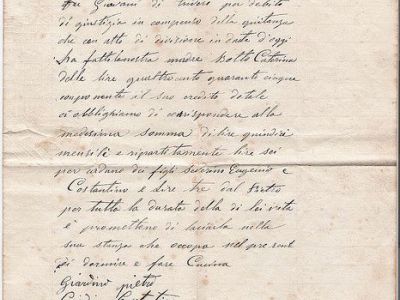 di giustizia in compenso della quitanza
che con atto di divisione in data d'oggi
ha fatto la nostra madre Caterina
delle lire quattrocento quaranti cinque
componente il suo credito dotale
ci obblighiamo di corrispondere alla
medesima somma di lire quindici
mensili e ripartitamente lire sei
per cadauno da figli Eugenio e
Costantino e Lire tre dal Pietro
per tutta la durata della di lei vita
e promettono di lasciarla nella
sua stanza che occupa nel presente
di dormire e fare Cucina
Giardini pietro